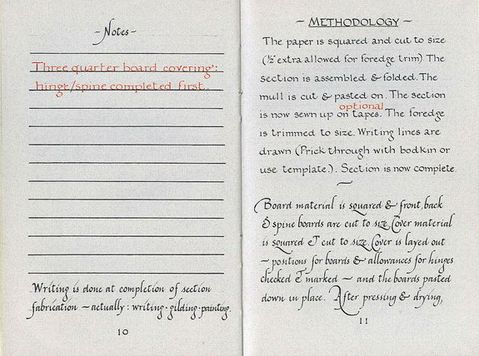 - Notes -
Three quarter board covering:
hinge/spine completed first.
Writing is done at completion of section
fabrication - actually: writing · gilding · painting.
10
- METHODOLOGY -
The paper is squared and cut to size
(½" extra allowed for foredge trim) The
section is assembled & folded. The
mull is cut & pasted on. The section
optional
is now sewn up on tapes. The foredge
is trimmed to size. Writing lines are
drawn (Prick through with bodkin or
use template.). Section is now complete
Board material is squared & front, back
& spine boards are cut to size. Cover material
is squared & cut to size. Cover is layed out
- positions for boards & allowances for hinges
checked & marked - and the boards pasted
down in place. After pressing & drying,
11